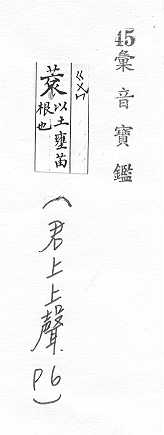 45彙音寶鑑
ㄍㄨㄣ
蔉以土壅苗
根也
(君上上聲 p6)